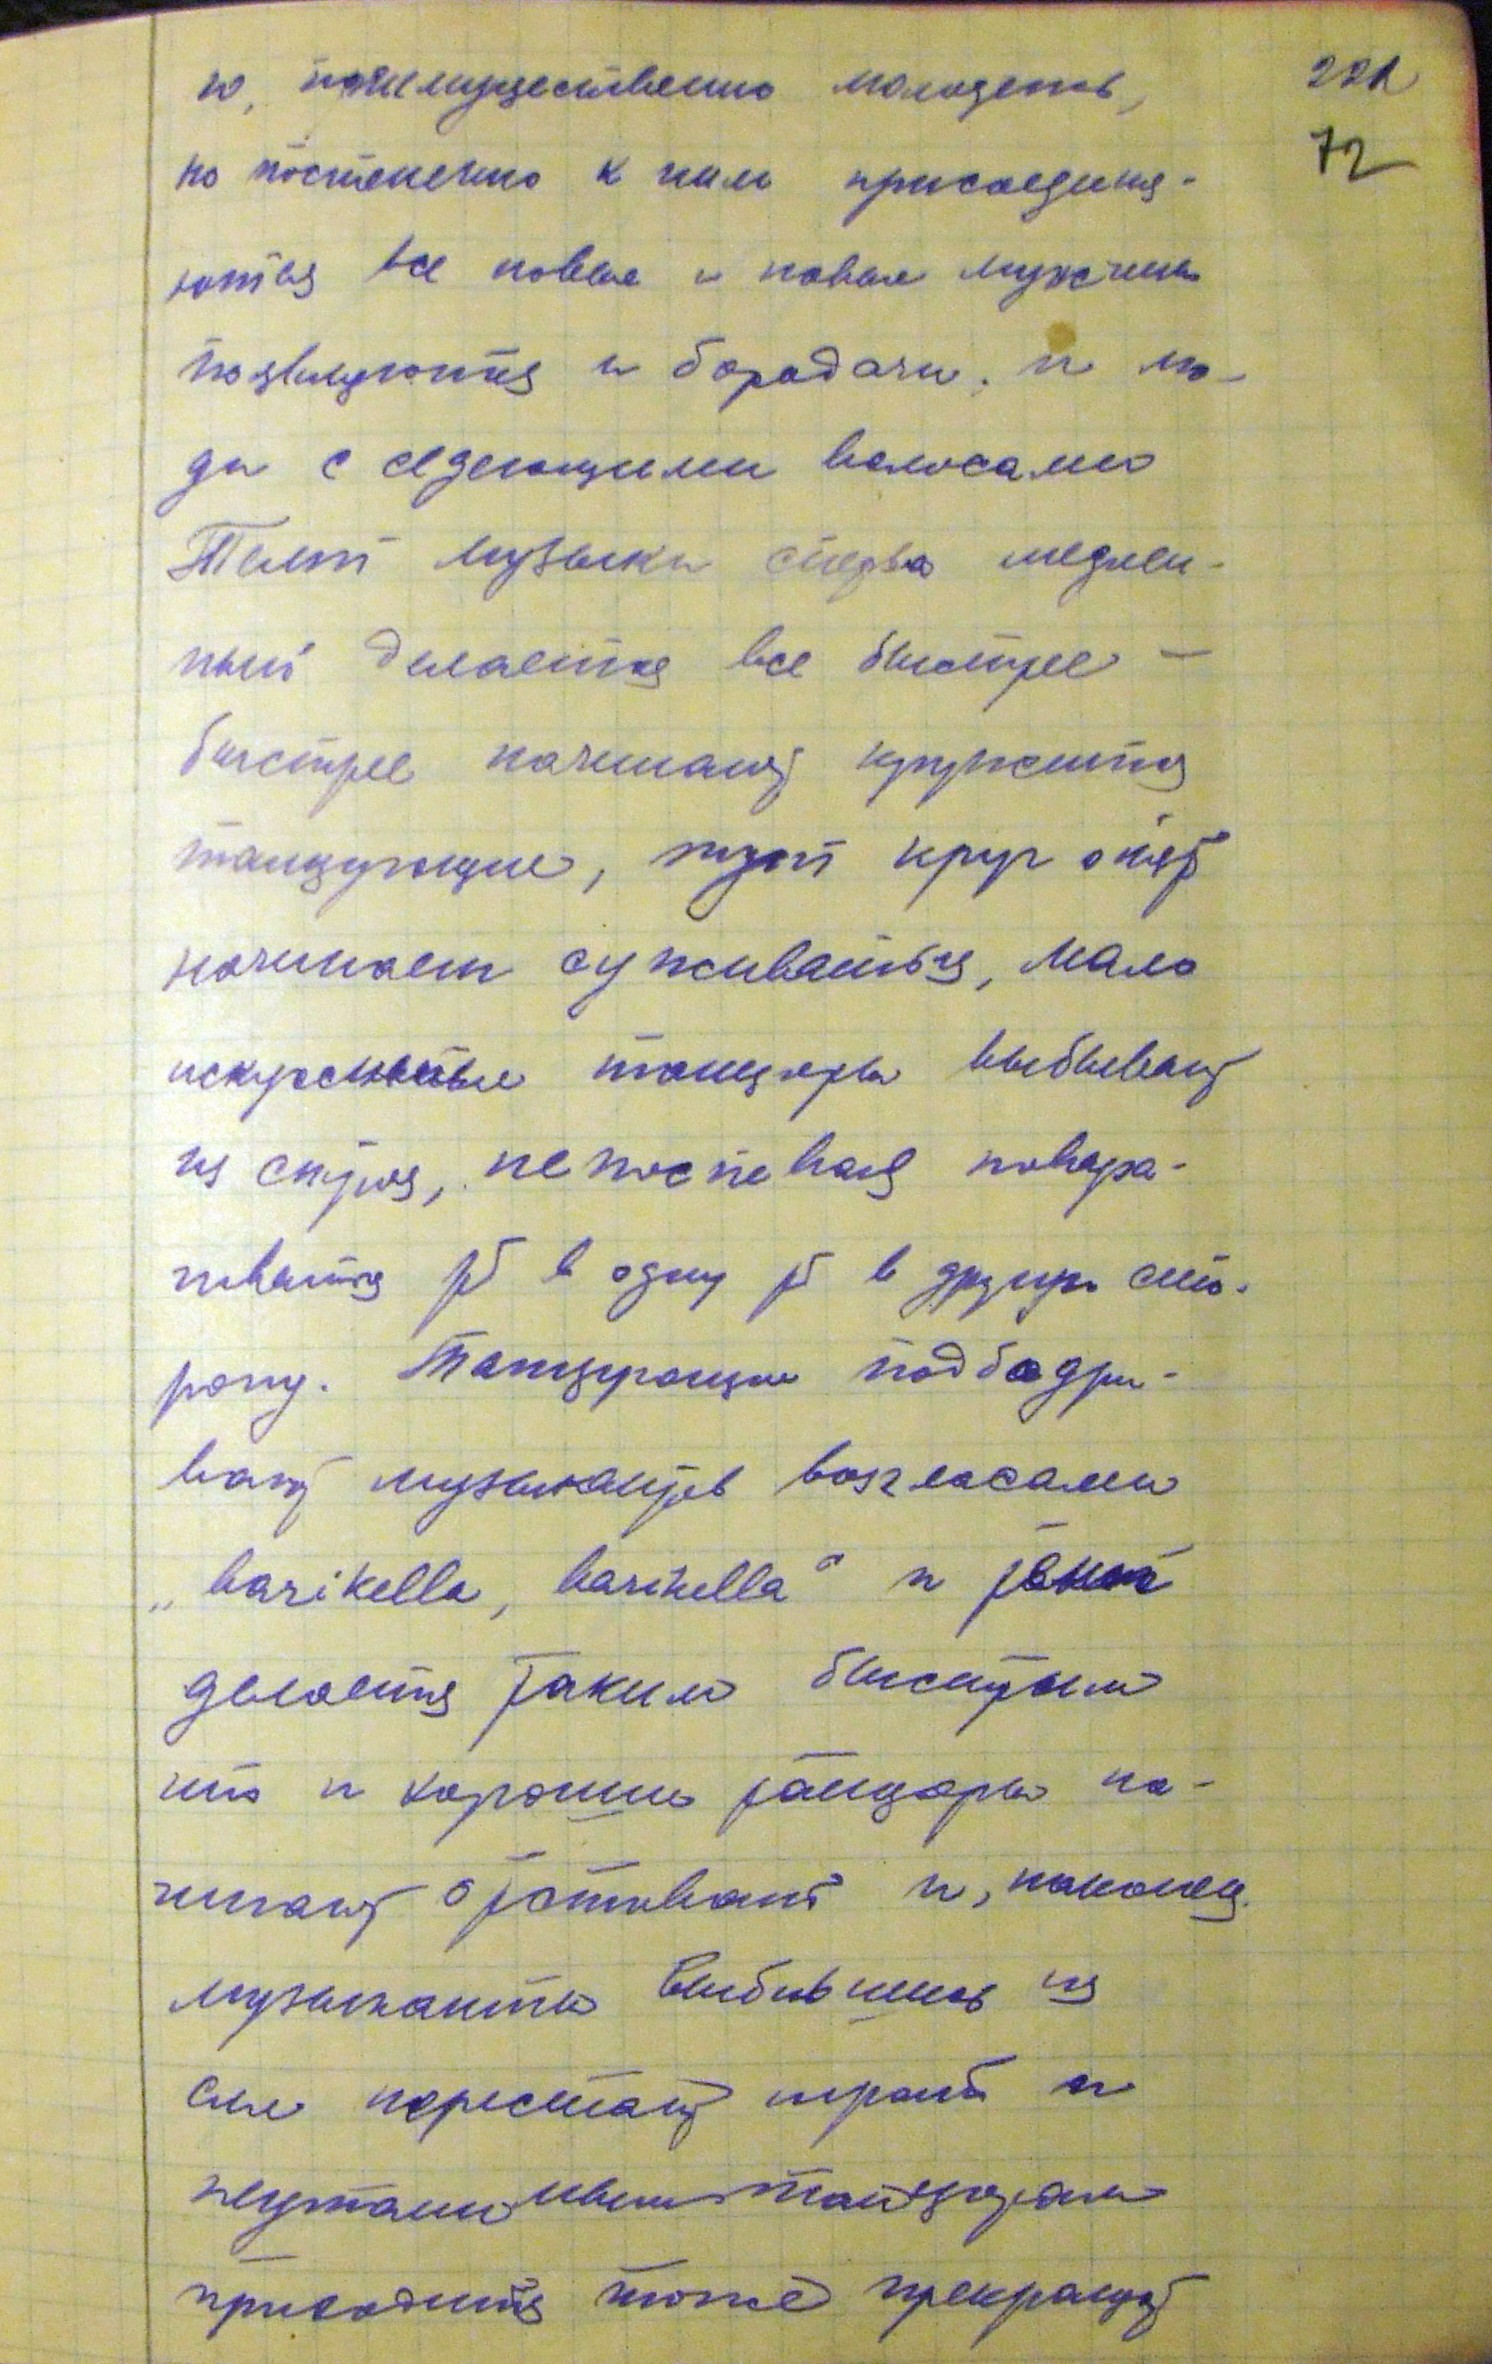 ю, преимущественно молодежь, 221
но постепенно к ним присоединя- 72
ются все новые и новые мужчины
появляются и бородачи, и лю-
ди с седеющими волосами
Темп музыки сперва медлен-
ный делается все быстрее —
быстрее начинают кружится
танцующие, круг опять
начинает суживаться, мало
искусные танцоры выбывают
из строя, не поспевая повора-
чиваться то в одну то в другую сто-
рону. Танцующие подбадри-
вают музыкантов возгласами
„barikella, barikella“ и темп
делается таким быстрым
что и хорошие танцоры на-
чинают отставать и, наконец.
музыканты выбившись из
сил перестают играть и
неутомимым танцорам
приходится тоже прекращать